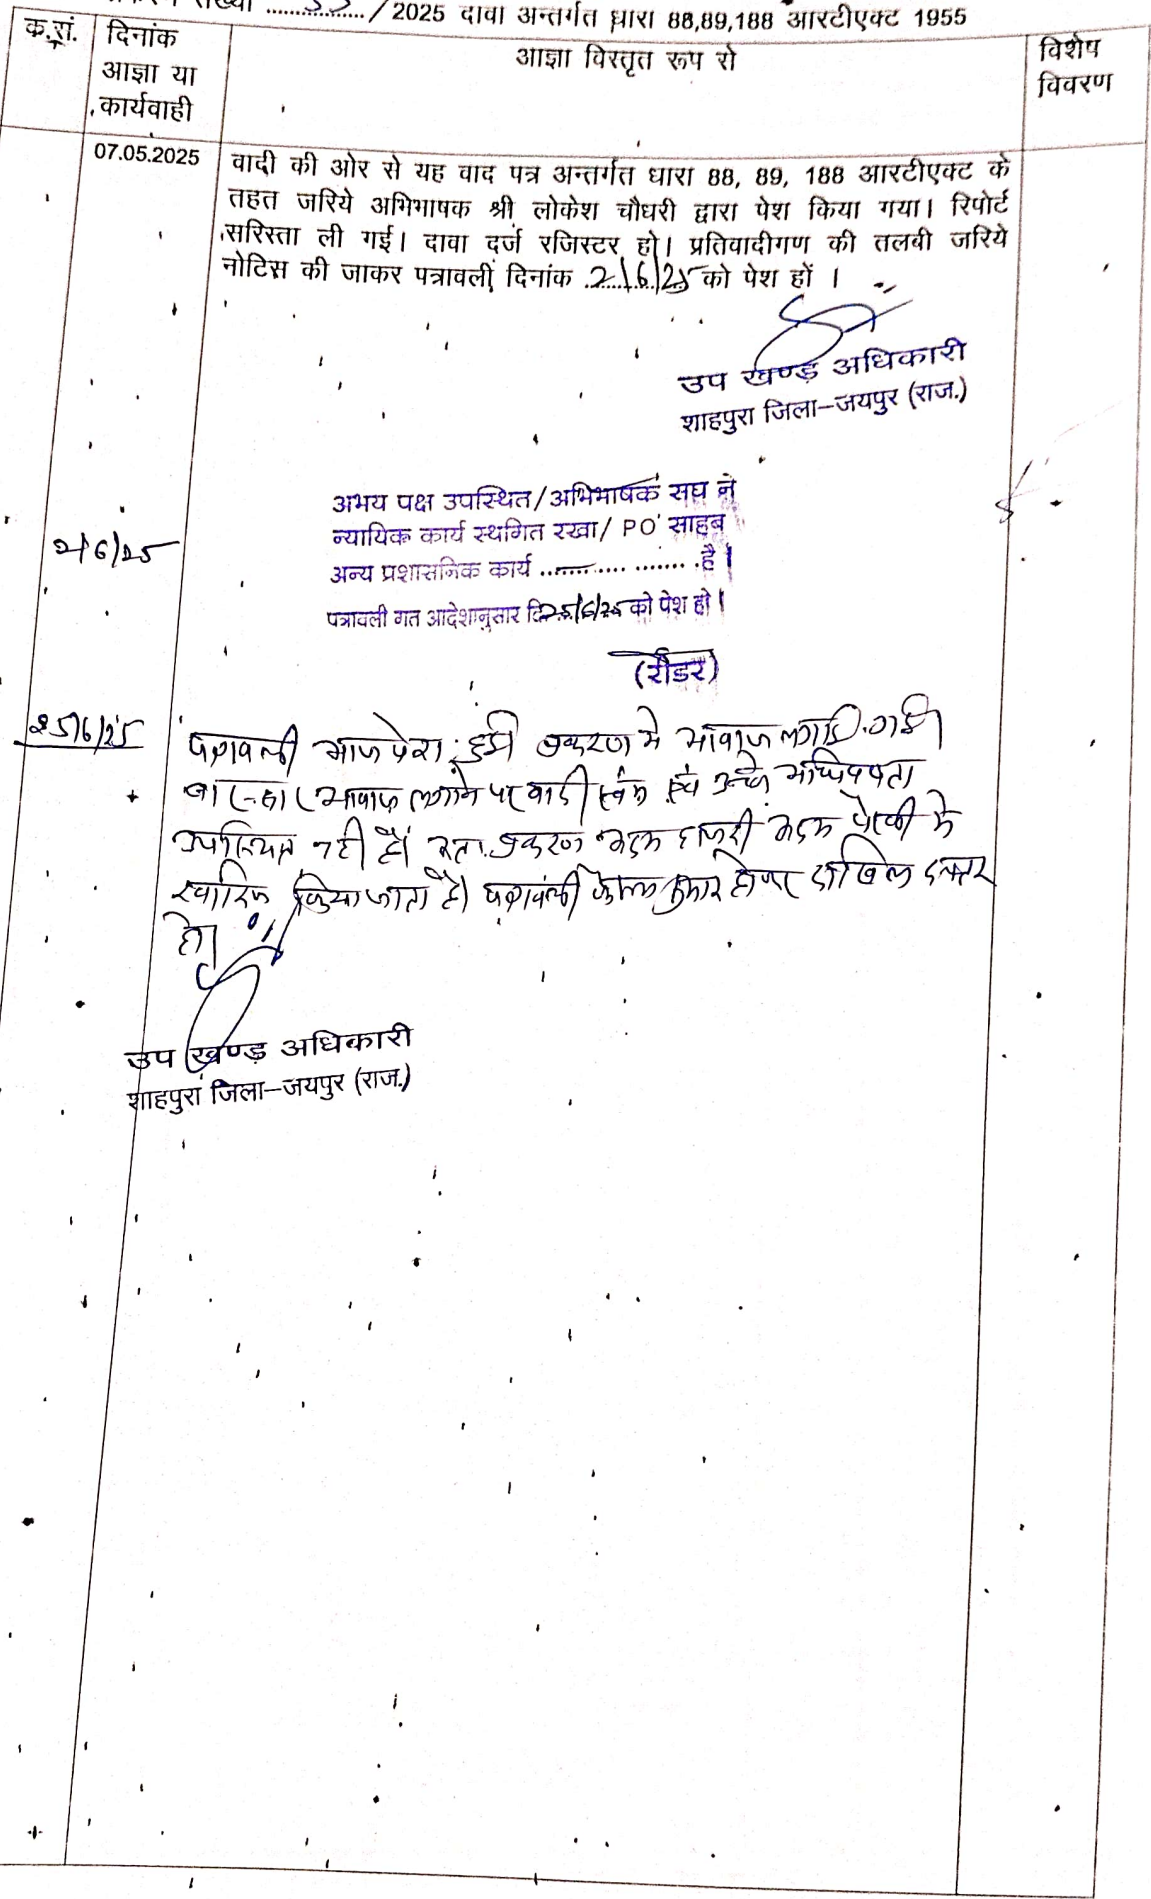 संख्या ................. / 2025 दावा अन्तर्गत धारा 88,89,188 आरटीएक्ट 1955
क.सं. दिनांक आज्ञा या कार्यवाही
आज्ञा विस्तृत रूप से
विशेष विवरण
07.05.2025
वादी की ओर से यह वाद पत्र अन्तर्गत धारा 88, 89, 188 आरटीएक्ट के
तहत जरिये अभिभाषक श्री लोकेश चौधरी द्वारा पेश किया गया। रिपोर्ट
सरिस्ता ली गई। दावा दर्ज रजिस्टर हो। प्रतिवादीगण की तलबी जरिये
नोटिस की जाकर पत्रावली दिनांक 2/6/25 को पेश हों ।
उप खण्ड अधिकारी
शाहपुरा जिला–जयपुर (राज.)
2/6/25
अभय पक्ष उपस्थित/अभिभाषक संघ ने
न्यायिक कार्य स्थगित रखा/ PO साहब
अन्य प्रशासनिक कार्य ................ है।
पत्रावली गत आदेशानुसार दि. 25/6/25 को पेश हो।
(रीडर)
25/6/25
पत्रावली आज पेश हुई प्रकरण मे आवाज लगाई गई।
बार-बार आवाज लगाने पर वादी स्वंय एवं उनके अधिवक्ता
उपस्थित नही है। अतः प्रकरण अदम हाजरी अदम पैरवी मे
खारिज किया जाता है। पत्रावली फैसल शुमार होकर दाखिल दफ्तर
हो।
उप खण्ड अधिकारी
शाहपुरा जिला–जयपुर (राज.)